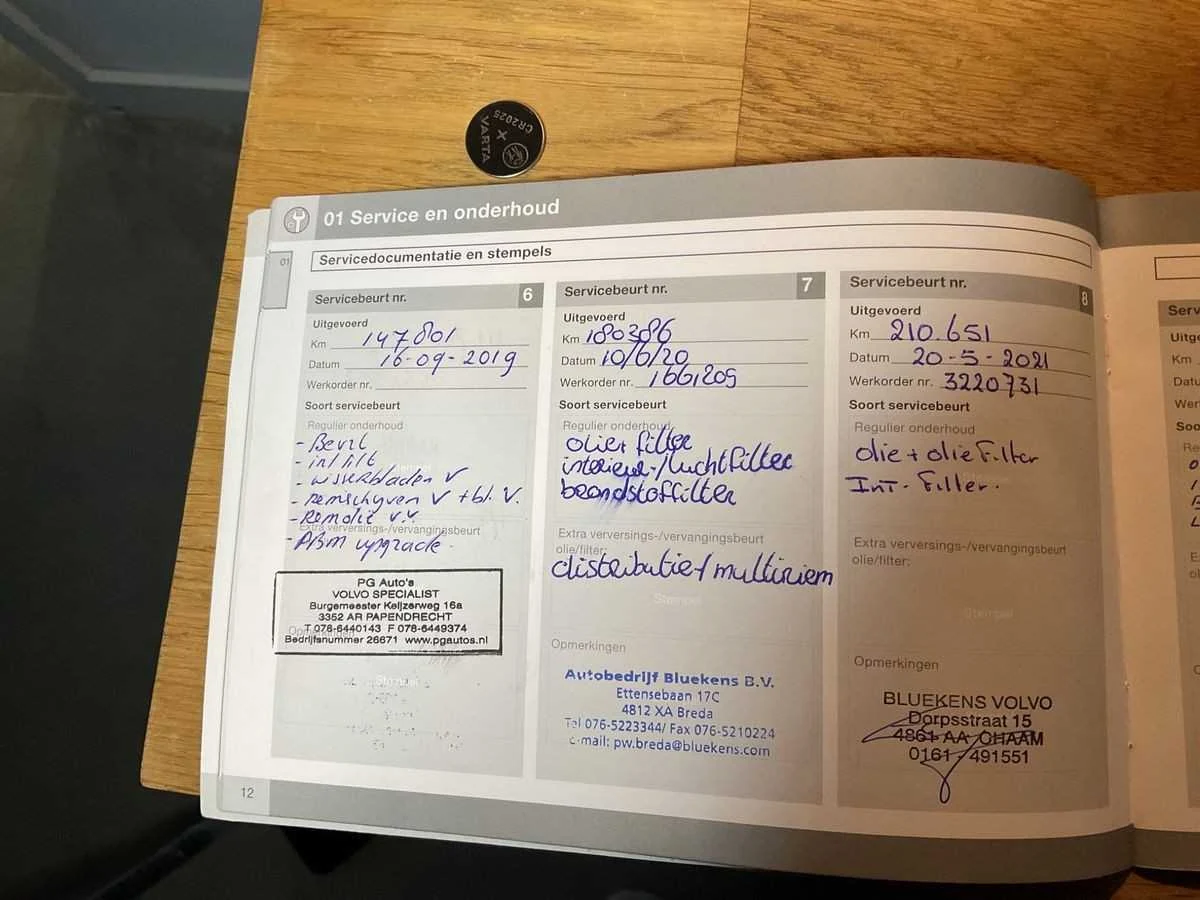 CR2025
VARTA
01 Service en onderhoud
01
Servicedocumentatie en stempels
Servicebeurt nr. 6
Uitgevoerd
Km 147801
Datum 16-09-2019
Werkorder nr.
Soort servicebeurt
Regulier onderhoud
- Int filt
- wisserbladen V
- Remschyven V + bl. V.
- Remolie v.v.
Extra verversings-/vervangingsbeurt
- PBM upgrade.
PG Auto's
VOLVO SPECIALIST
Burgemeester Keijzerweg 16a
3352 AR PAPENDRECHT
T 078-6440143 F 078-6449374
Opmerkingen
Bedrijfsnummer 26671 www.pgautos.nl
Stempel
12
Servicebeurt nr. 7
Uitgevoerd
Km 180386
Datum 10/6/20
Werkorder nr. 1661209
Soort servicebeurt
Regulier onderhoud
olie+ filter
interieur-/luchtfilter
brandstoffilter
Extra verversings-/vervangingsbeurt
olie/filter:
distributie+/ multiriem
Stempel
Opmerkingen
Autobedrijf Bluekens B.V.
Ettensebaan 17C
4812 XA Breda
Tel 076-5223344/ Fax 076-5210224
e-mail: pw.breda@bluekens.com
Servicebeurt nr. 8
Uitgevoerd
Km 210.651
Datum 20-5-2021
Werkorder nr. 3220731
Soort servicebeurt
Regulier onderhoud
olie + olie Filter
Int. Filter.
Extra verversings-/vervangingsbeurt
olie/filter:
Stempel
Opmerkingen
BLUEKENS VOLVO
Dorpsstraat 15
4861 AA CHAAM
0161 - 491551
Serv
Uitge
Km
Datu
Wer
Soo